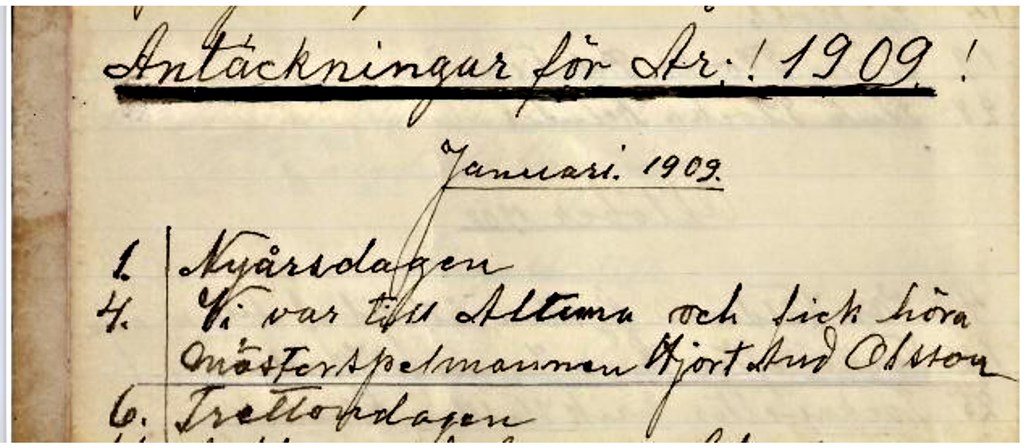 Antäckningar för År: ! 1909 !
Januari. 1909.
1. Nyårsdagen
4. Vi var till Altuna och fick höra
mästerspelmannen Hjort And Olsson
6. Trettondagen